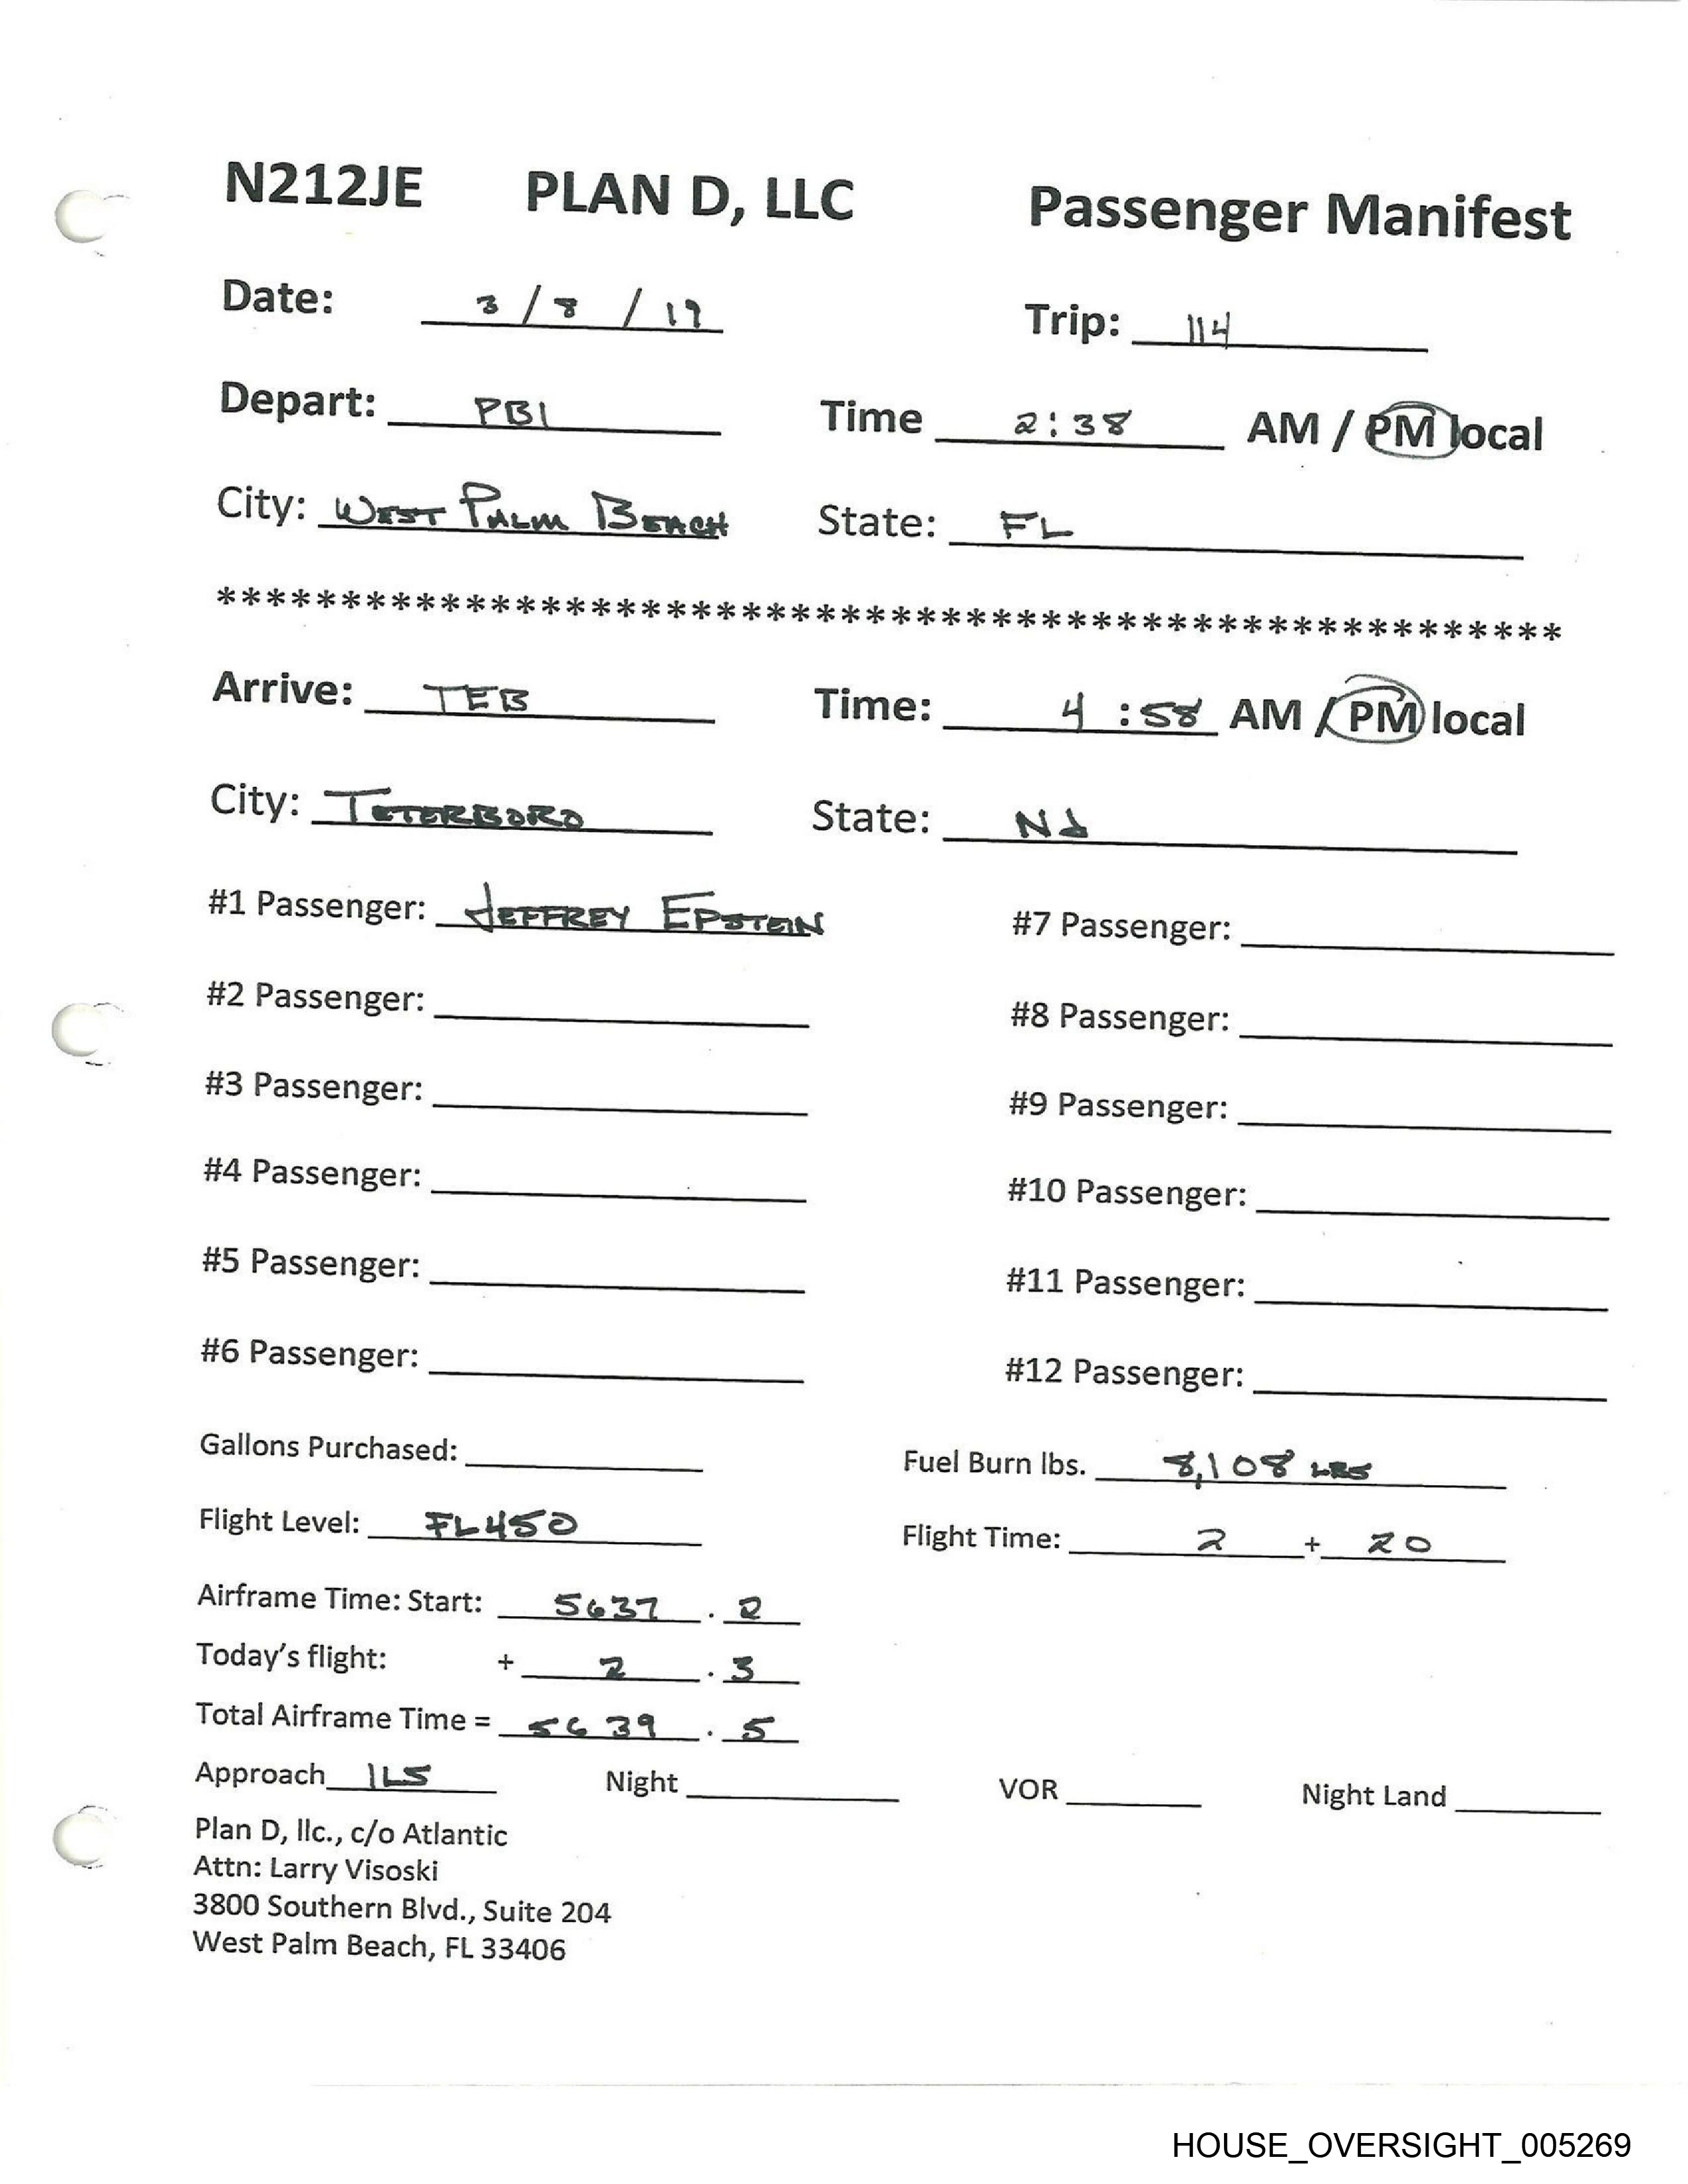 N212JE PLAN D, LLC Passenger Manifest
Date: 3 / 8 / 19 Trip: 114
Depart: PBI Time 2:38 AM / PM local
City: WEST PALM BEACH State: FL
******************************************************
Arrive: TEB Time: 4 :58 AM / PM local
City: TETERBORO State: NJ
#1 Passenger: JEFFREY EPSTEIN #7 Passenger:
#2 Passenger: #8 Passenger:
#3 Passenger: #9 Passenger:
#4 Passenger: #10 Passenger:
#5 Passenger: #11 Passenger:
#6 Passenger: #12 Passenger:
Gallons Purchased: Fuel Burn lbs. 8,108 LBS
Flight Level: FL450 Flight Time: 2 + 20
Airframe Time: Start: 5637 . 2
Today's flight: + 2 . 3
Total Airframe Time = 5639 . 5
Approach ILS Night VOR Night Land
Plan D, llc., c/o Atlantic
Attn: Larry Visoski
3800 Southern Blvd., Suite 204
West Palm Beach, FL 33406
HOUSE_OVERSIGHT_005269